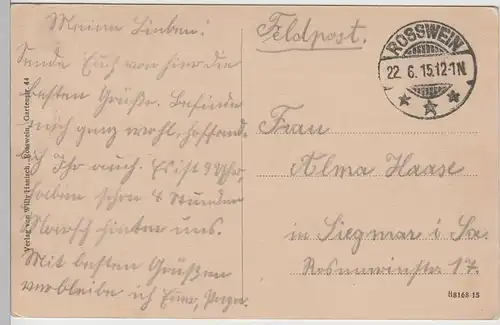 Meine Lieben!
Sende Euch von hier die
besten Grüße. Befinde
mich ganz wohl, hoffend
Ihr auch. Es ist 9 Uhr,
haben schon 4 Stunden
Marsch hinter uns.
Mit besten Grüßen
verbleibe ich Euer
Verlag von Willy Hanisch, Rosswein, Gartenstr. 44
Feldpost.
ROSSWEIN
22. 6. 15.12-1N
Frau
Alma Haase
in Siegmar i. Sa.
Rosmarinstr. 17.
H8168-15